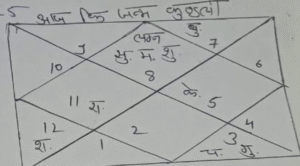 -5 आप कि जन्म कुण्डली
लग्न बु.
9 सु. म. शु. 7
10 8 6
11 रा. के. 5
12 2 4
श. 1 3
च. गु.